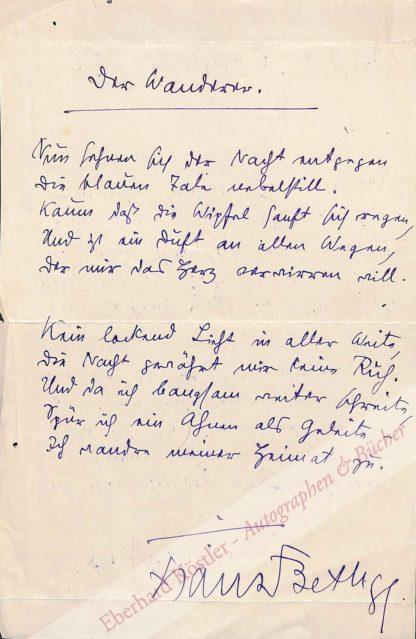 Der Wanderer.
Nun sehnen sich der Nacht entgegen
die blauen Tale nebelstill.
Kaum daß die Wipfel sanft sich regen,
Und ist ein Duft an allen Wegen,
der mir das Herz verwirren will.
Kein lockend Licht in aller Weite,
die Nacht gewährt mir keine Ruh.
Und da ich langsam weiter schreite,
Spür ich ein Ahnen als Geleite
Ich wandre meiner Heimat zu.
Hans Bethge
Eberhard Köstler - Autographen & Bücher